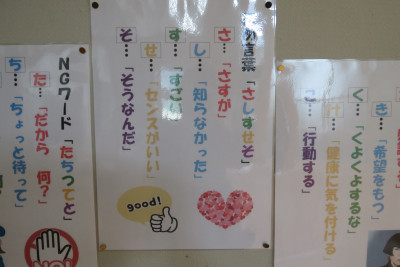 の言葉「さしすせそ」
さ…「さすが」
し…「知らなかった」
す…「すごい」
せ…「センスがいい」
そ…「そうなんだ」
good!
き…「希望をもつ」
く…「くよくよするな」
け…「健康に気を付ける」
こ…「行動する」
NGワード「たちつてと」
た…「だから 何?」
ち…「ちょっと待って」